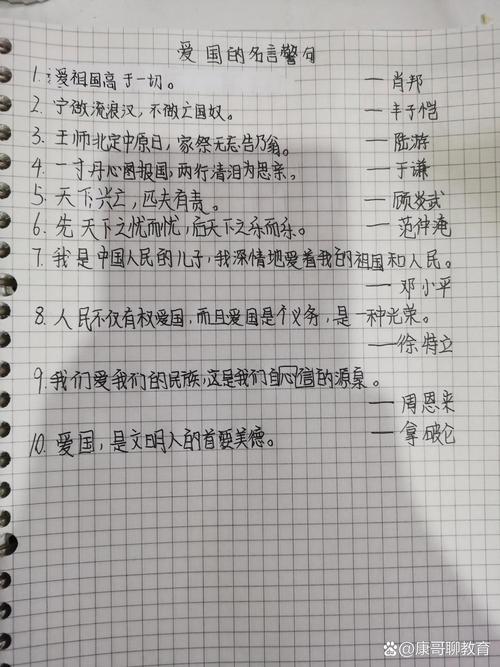 爱国的名言警句
1. 爱祖国高于一切。 —肖邦
2. 宁做流浪汉，不做亡国奴。 —丰子恺
3. 王师北定中原日，家祭无忘告乃翁。 —陆游
4. 一寸丹心图报国，两行清泪为思亲。 —于谦
5. 天下兴亡，匹夫有责。 —顾炎武
6. 先天下之忧而忧，后天下之乐而乐。 —范仲淹
7. 我是中国人民的儿子，我深情地爱着我的祖国和人民。
—邓小平
8. 人民不仅有权爱国，而且爱国是个义务，是一种光荣。
—徐特立
9. 我们爱我们的民族，这是我们自心信的源泉。
—周恩来
10. 爱国，是文明人的首要美德。 —拿破仑
康哥聊教育